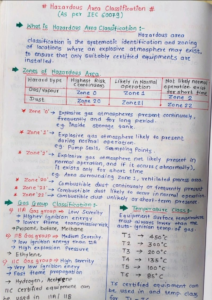 * Hazardous Area Classification *
(As per IEC 60079)
→ What Is Hazardous Area Classification :-
Hazardous area
classification is the systematic identification and zoning
of locations where an explosive atmosphere may exist,
to ensure that only suitably certified equipments are
installed.
→ Zones of Hazardous Area
Hazard Type Highest Risk Continuous Likely in Normal operation Not likely normal operation
Gas/Vapour Zone 0 Zone 1 Zone 2
Dust Zone 20 Zone 21 Zone 22
Explosive gas atmosphere present continuously,
frequently and for long period
eg. Inside storage tank
Zone 1 - Explosive gas atmosphere likely to present,
during normal operation.
eg. Pump Seals, Sampling Points
Explosive gas atmosphere not likely present in
normal operation, and if it occurs abnormally,
exists only for short time.
eg. Area surrounding zone 1, ventilated areas
Combustible dust continuously or frequently present
Combustible dust likely to occur in normal operation
Combustible dust unlikely or short-term presence
→ Gas Group Classification :-
IIA Gas group → Low Severity
Highest ignition energy
lower flame propagation
Propane, butane, Methane
IIB Gas group → Medium Severity
low ignition energy than IIA
High explosion Pressure
Ethylene
IIC Gas group → High Severity
Very low ignition energy
Fast flame propagation
Hydrogen, Acetylene
→ Temperature Class :-
Equipment surface temperature
T1 → 450°C
T2 → 300°C
T3 → 200°C
T4 → 135°C
T5 → 100°C
T6 → 85°C